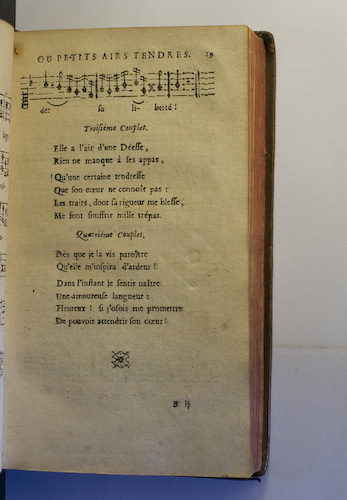 OU PETITS AIRS TENDRES. 19
der sa li- berté !
Troisiéme Couplet.
Elle a l'air d'une Déesse,
Rien ne manque à ses appas,
Qu'une certaine tendresse
Que son cœur ne connoît pas :
Les traits, dont sa rigueur me blesse,
Me font souffrir mille trépas.
Quatriéme Couplet.
Dès que je la vis paroître
Qu'elle m'inspira d'ardeur !
Dans l'instant je sentis naître
Une amoureuse langueur :
Heureux ! si j'osois me promettre
De pouvoir attendrir son cœur !
B iij